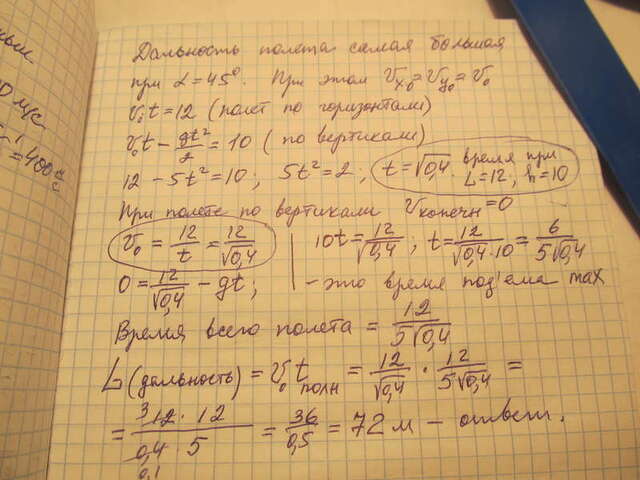 ным
0 м/с
= 400 с/с
Дальность полета самая большая
при α = 45°. При этом Vx₀ = Vy₀ = V₀
V₀t = 12 (полет по горизонтали)
V₀t - gt²/2 = 10 (по вертикали)
12 - 5t² = 10; 5t² = 2; t = √0,4. время при L = 12; h = 10
При полете по вертикали Vконечн = 0
V₀ = 12/t = 12/√0,4 | 10t = 12/√0,4; t = 12/(√0,4·10) = 6/(5√0,4)
0 = 12/√0,4 - gt; | - это время под'ема max
Время всего полета = 12/(5√0,4)
L (дальность) = V₀ tполн = 12/√0,4 · 12/(5√0,4) =
= (3 12 · 12)/(0,4 · 5) = 36/0,5 = 72 м - ответ.
0,1